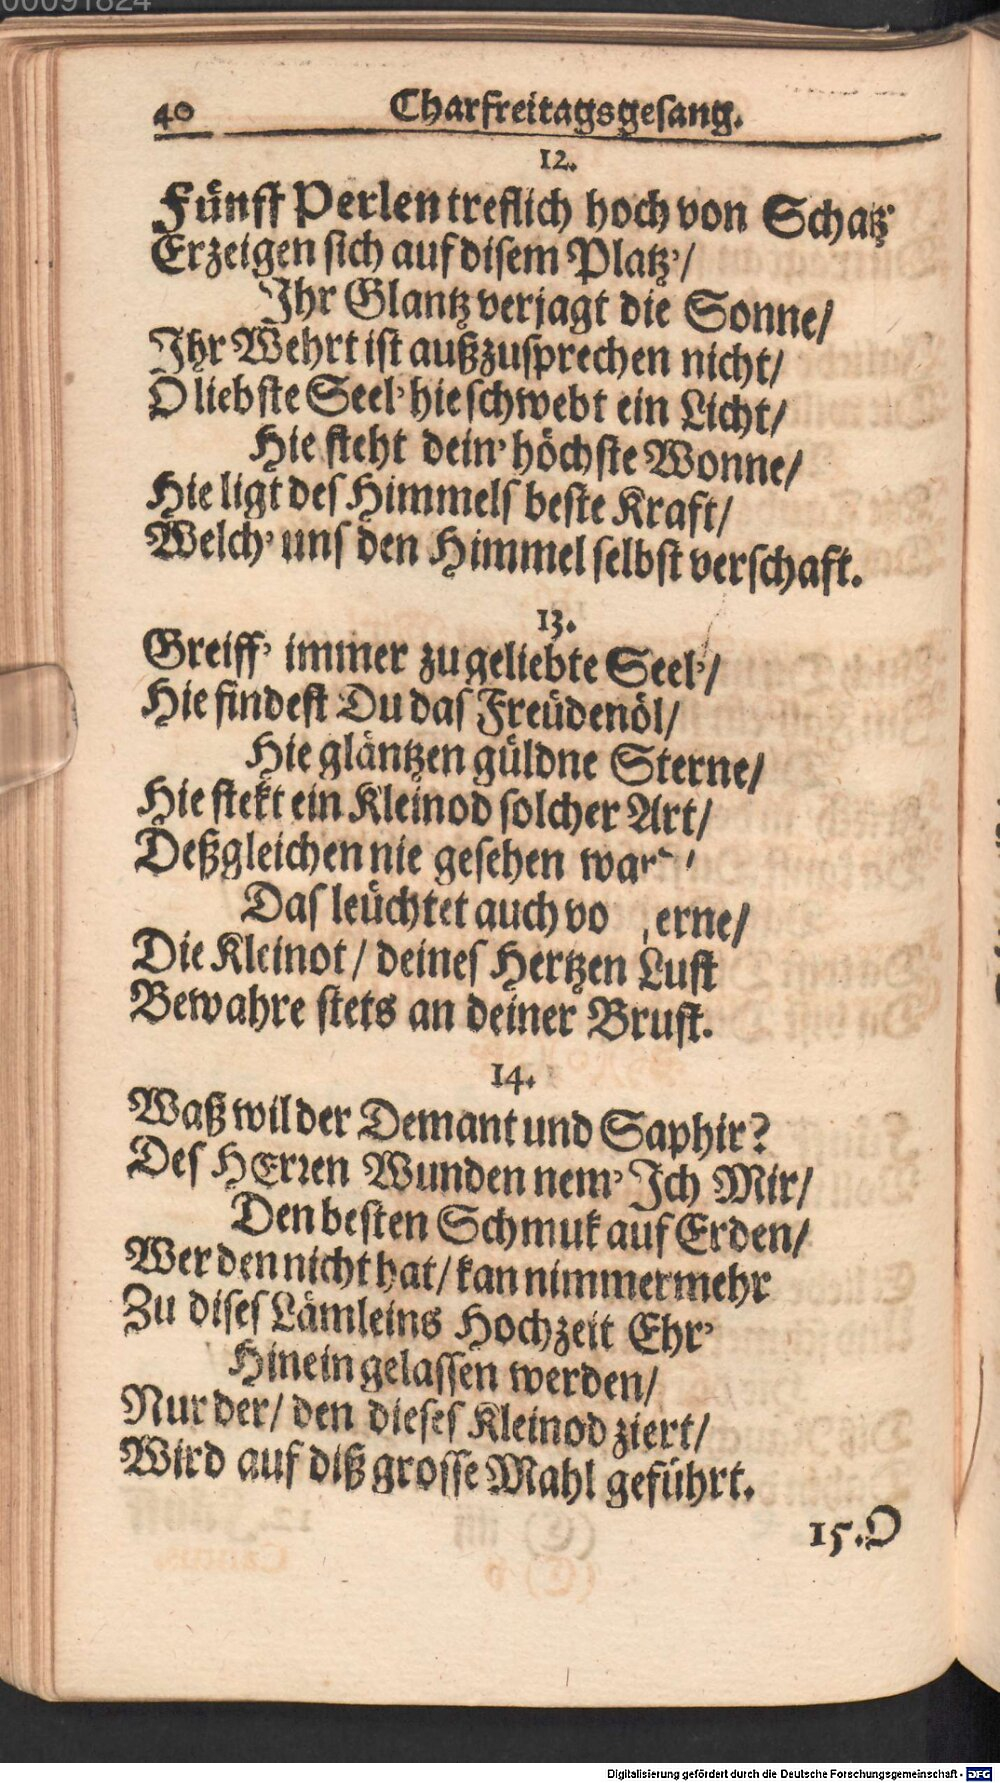 00091824
40 Charfreitagsgesang.
12.
Fünff Perlen treflich hoch von Schatz'
Erzeigen sich auf disem Platz'/
Ihr Glantz verjagt die Sonne/
Ihr Wehrt ist außzusprechen nicht/
O liebste Seel' hie schwebt ein Licht/
Hie steht dein' höchste Wonne/
Hie ligt des Himmels beste Kraft/
Welch' uns den Himmel selbst verschaft.
13.
Greiff' immer zu geliebte Seel'/
Hie findest Du das Freüdenöl/
Hie gläntzen güldne Sterne/
Hie stekt ein Kleinod solcher Art/
Deßgleichen nie gesehen
Das leüchtet auch
Die Kleinot/ deines Hertzen Lust
Bewahre stets an deiner Brust.
14.
Waß wil der Demant und Saphir?
Des HErren Wunden nem' Ich Mir/
Den besten Schmuk auf Erden/
Wer den nicht hat/ kan nimmermehr
Zu dises Lämleins Hochzeit Ehr'
Hinein gelassen werden/
Nur der/ den dieses Kleinod ziert/
Wird auf diß grosse Mahl geführt.
15. O
Digitalisierung gefördert durch die Deutsche Forschungsgemeinschaft - DFG